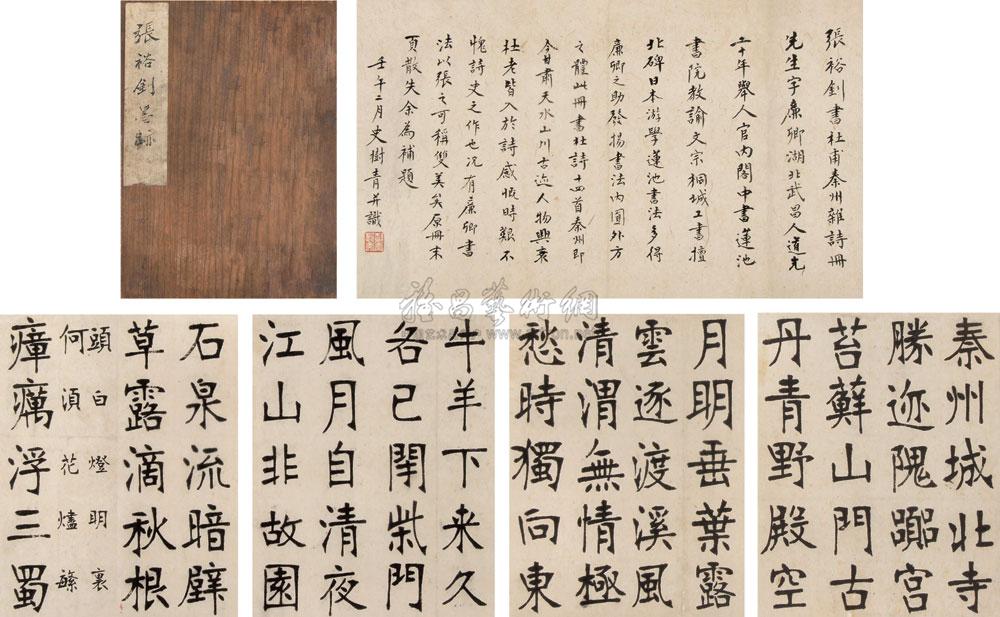 張裕釗墨跡
張裕釗書杜甫秦州雜詩冊
先生字廉卿湖北武昌人道光
二十年舉人官內閣中書蓮池
書院教諭文宗桐城工書擅
北碑日本游學蓮池書法多得
廉卿之助發揚書法內圓外方
之體此冊書杜詩十四首秦州即
今甘肅天水山川古迹人物興衰
杜老皆入於詩感慨時艱不
愧詩史之作也況有廉卿書
法以張之可稱雙美矣原冊末
頁散失余為補題
壬午二月史樹青并識
秦州城北寺
勝迹隗囂宮
苔蘚山門古
丹青野殿空
月明垂葉露
雲逐渡溪風
清渭無情極
愁時獨向東
牛羊下来久
各已閉柴門
風月自清夜
江山非故園
石泉流暗壁
草露滴秋根
頭白燈明裏
何須花燼繁
瘴癘浮三蜀